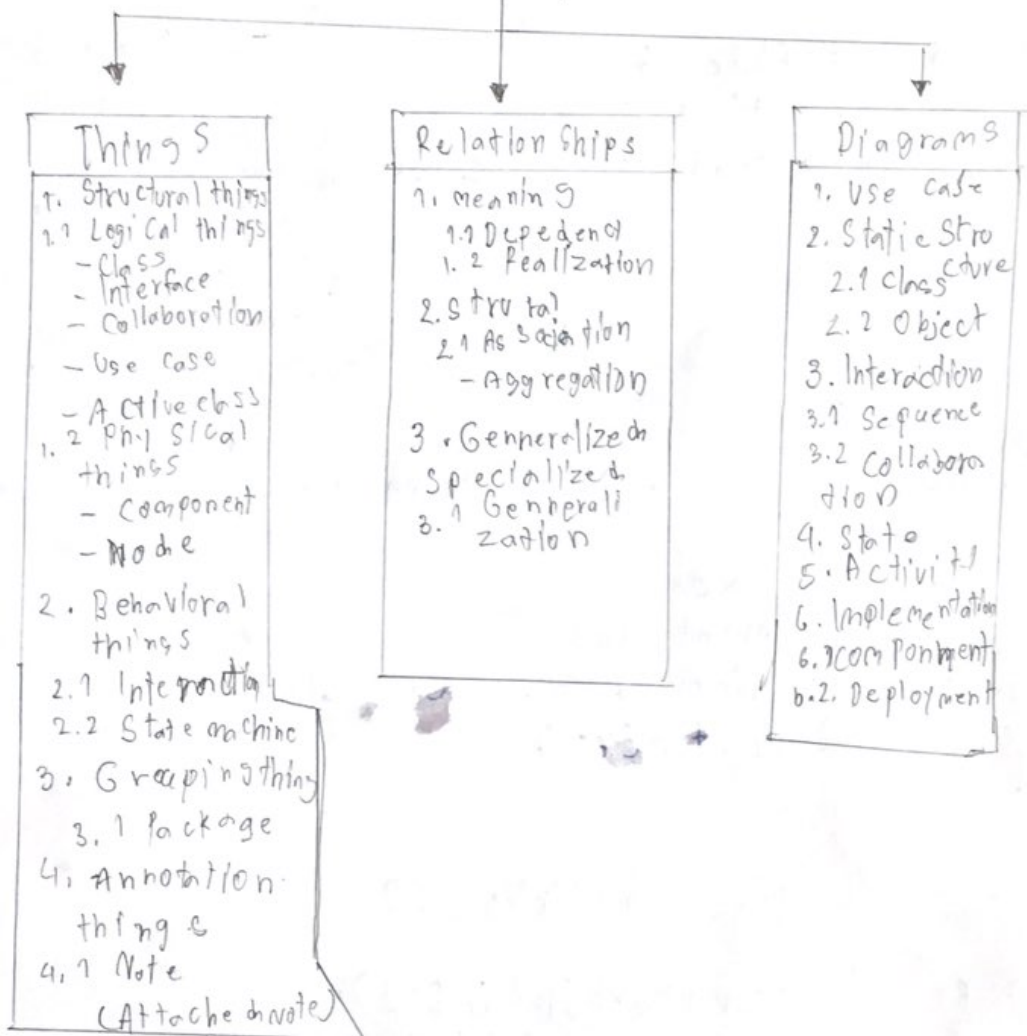 Things
1. Structural things
1.1 Logical things
- Class
- Interface
- Collaboration
- Use case
- Active class
1.2 Physical
things
- Component
- Node
2. Behavioral
things
2.1 Interaction
2.2 State machine
3. Grouping thing
3.1 Package
4. Annotation
things
4.1 Note
(Attached note)
Relation Ships
1. meaning
1.1 Depedency
1.2 Realization
2. Strutal
2.1 Assoication
- Aggregation
3. Genneralized
Specialized
3.1 Gennerali
zation
Diagrams
1. Use Case
2. Static Stru
cture
2.1 Class
2.2 Object
3. Interaction
3.1 Sequence
3.2 Collabora
tion
4. State
5. Activity
6. Implementation
6.1 Componment
6.2. Deployment